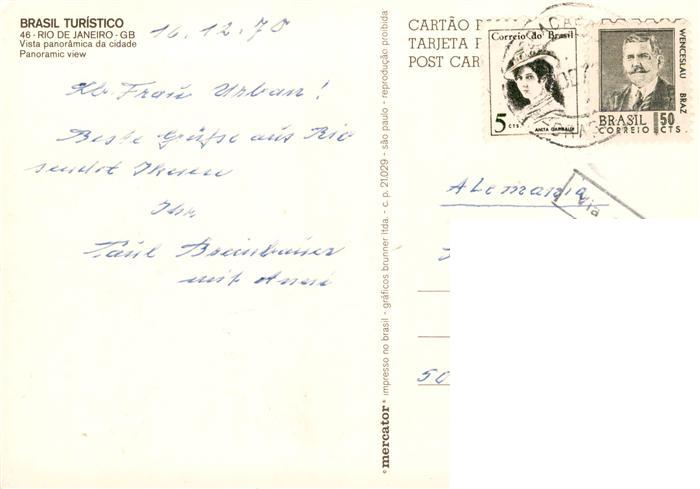 BRASIL TURÍSTICO
46 - RIO DE JANEIRO - GB
Vista panorâmica da cidade
Panoramic view
16.12.70
Lb. Frau Urban!
Beste Grüße aus Rio
sendet Ihnen
Ihr
Paul Breinbauer
mit Anni
mercator impresso no brasil - gráficos brunner ltda. - c. p. 21.029 - são paulo - reprodução proibida
CARTÃO P
TARJETA P
POST CAR
Correio do Brasil
5 CTS
ANITA GARIBALDI
WENCESLAU BRAZ
BRASIL 50
CORREIO CTS.
Alemania
via
50